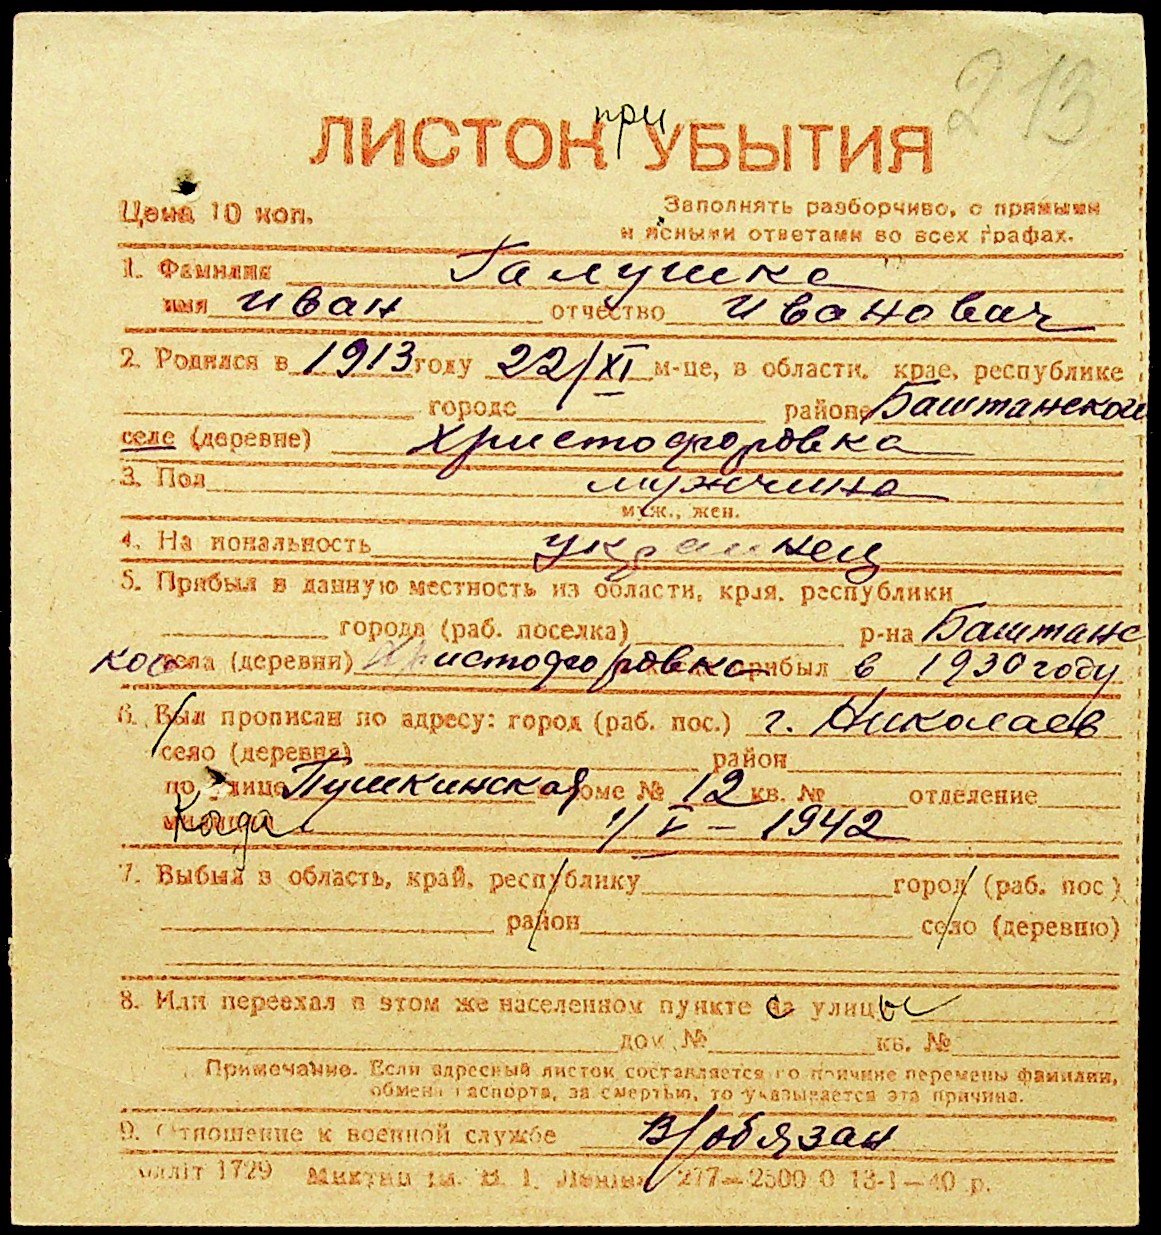 213
при
ЛИСТОК УБЫТИЯ
Цена 10 коп.
Заполнять разборчиво, с прямыми
и ясными ответами во всех графах.
1. Фамилия Галушка
имя Иван отчество Иванович
2. Родился в 1913 году 22/XI м-це, в области, крае, республике
городе районе Баштанского
селе (деревне) Христофоровка
3. Пол мужчина
муж., жен.
4. На иональность украинец
5. Прибыл в данную местность из области, края, республики
города (раб. поселка) р-на Баштанс
кого села (деревни) Христофоровка прибыл в 1930 году
6. Был прописан по адресу: город (раб. пос.) г. Николаев
село (деревня) район
по улице Пушкинская доме № 12 кв. № отделение
милиции Когда 1/V – 1942
7. Выбыл в область, край, республику город (раб. пос)
район село (деревню)
8. Или переехал в этом же населенном пункте с на улицы
дом № кв. №
Примечание. Если адресный листок составляется по причине перемены фамилии,
обмена паспорта, за смертью, то указывается эта причина.
9. Отношение к военной службе в/обязан
1729 ім. В. І. Леніна 277—2500 0 13-1—40 р.